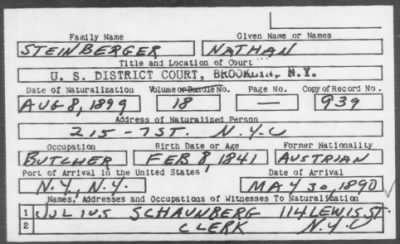 Family Name Given Name or Names
STEINBERGER NATHAN
Title and Location of Court
U. S. DISTRICT COURT, BROOKLYN, N.Y.
Date of Naturalization Volume or Bundle No. Page No. Copy of Record No.
AUG 8, 1899 18 — 939
Address of Naturalized Person
215-7 ST. N.Y.C
Occupation Birth Date or Age Former Nationality
BUTCHER FEB 8, 1841 AUSTRIAN
Port of Arrival in the United States Date of Arrival
N.Y., N.Y. MAY 30, 1890
Names, Addresses and Occupations of Witnesses To Naturalization
1 JULIUS SCHAUNBERG 114 LEWIS ST.
2 CLERK N.Y.C